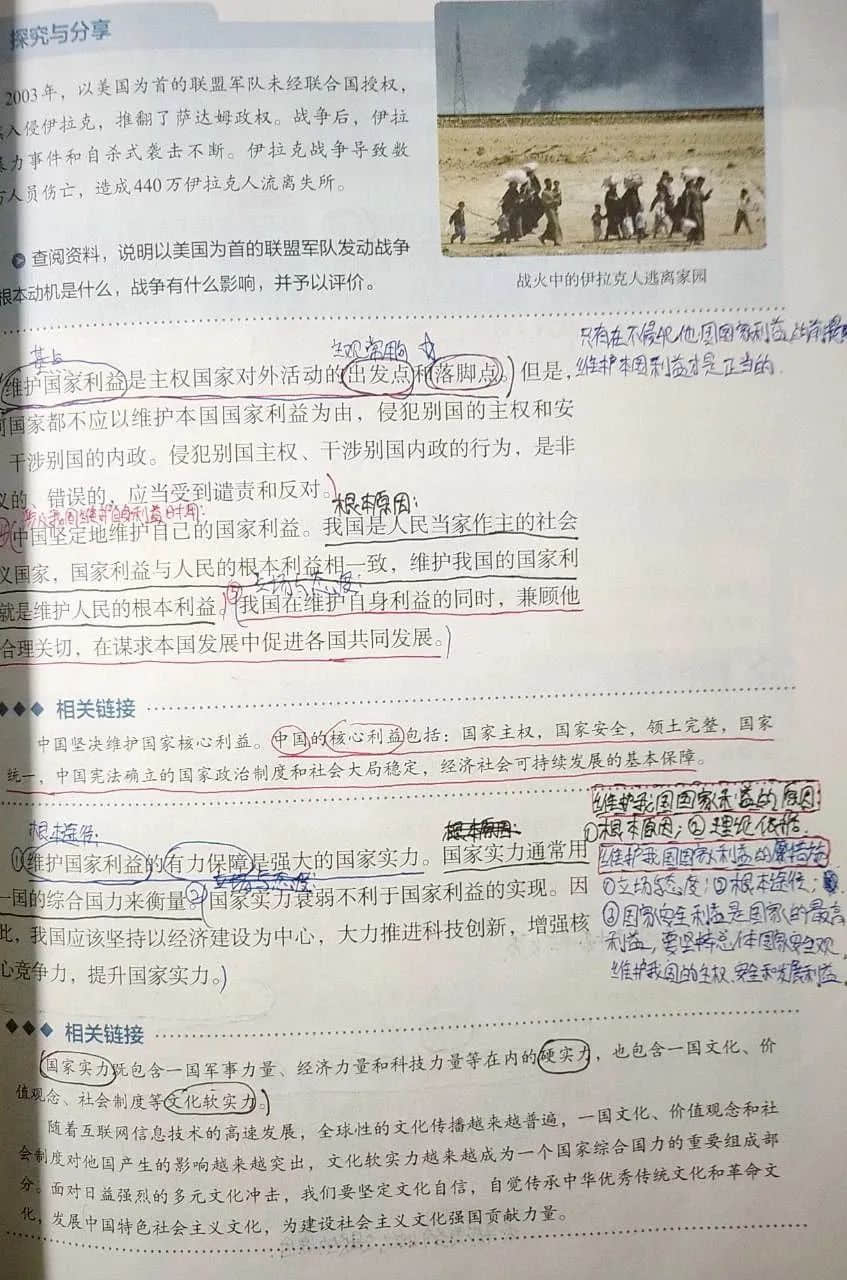 探究与分享
2003年，以美国为首的联盟军队未经联合国授权，
入侵伊拉克，推翻了萨达姆政权。战争后，伊拉
暴力事件和自杀式袭击不断。伊拉克战争导致数
万人员伤亡，造成440万伊拉克人流离失所。
查阅资料，说明以美国为首的联盟军队发动战争
根本动机是什么，战争有什么影响，并予以评价。
战火中的伊拉克人逃离家园
只有在不侵犯他国国家利益的前提
维护本国利益才是正当的.
维护国家利益是主权国家对外活动的出发点和落脚点。但是，
何国家都不应以维护本国国家利益为由，侵犯别国的主权和安
干涉别国的内政。侵犯别国主权、干涉别国内政的行为，是非
义的、错误的，应当受到谴责和反对。
根本原因：
中国坚定地维护自己的国家利益。我国是人民当家作主的社会
义国家，国家利益与人民的根本利益相一致，维护我国的国家利
立场与态度：
就是维护人民的根本利益。我国在维护自身利益的同时，兼顾他
合理关切，在谋求本国发展中促进各国共同发展。
相关链接
中国坚决维护国家核心利益。中国的核心利益包括：国家主权，国家安全，领土完整，国家
统一，中国宪法确立的国家政治制度和社会大局稳定，经济社会可持续发展的基本保障。
维护我国国家利益的原因：
①根本原因；②理论依据.
根本途径：
①维护国家利益的有力保障是强大的国家实力。国家实力通常用
一国的综合国力来衡量。②国家实力衰弱不利于国家利益的实现。因
此，我国应该坚持以经济建设为中心，大力推进科技创新，增强核
心竞争力，提升国家实力。
维护我国国家利益的措施
①立场与态度；②根本途径；
③国家安全利益是国家的最高
利益，要坚持总体国家安全观，
维护我国的主权、安全和发展利益
相关链接
国家实力既包含一国军事力量、经济力量和科技力量等在内的硬实力，也包含一国文化、价
值观念、社会制度等文化软实力。
随着互联网信息技术的高速发展，全球性的文化传播越来越普遍，一国文化、价值观念和社
会制度对他国产生的影响越来越突出，文化软实力越来越成为一个国家综合国力的重要组成部
分。面对日益强烈的多元文化冲击，我们要坚定文化自信，自觉传承中华优秀传统文化和革命文
化，发展中国特色社会主义文化，为建设社会主义文化强国贡献力量。